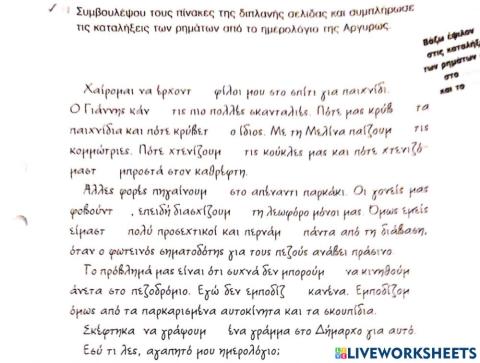 ✓ Συμβουλέψου τους πίνακες της διπλανής σελίδας και συμπλήρωσε
τις καταλήξεις των ρημάτων από το ημερολόγιο της Αργυρώς.
Βάζω έψιλον
στις καταλήξ
των ρημάτων
στο
και το
Χαίρομαι να έρχοντ φίλοι μου στο σπίτι για παιχνίδι.
Ο Γιάννης κάν τις πιο πολλές σκανταλιές. Πότε μας κρύβ τα
παιχνίδια και πότε κρύβετ ο ίδιος. Με τη Μελίνα παίζουμ τις
κομμώτριες. Πότε χτενίζουμ τις κούκλες μας και πότε χτενιζό-
μαστ μπροστά στον καθρέφτη.
Άλλες φορές πηγαίνουμ στο απέναντι παρκάκι. Οι γονείς μας
φοβούντ , επειδή διασχίζουμ τη λεωφόρο μόνοι μας. Όμως εμείς
είμαστ πολύ προσεχτικοί και περνάμ πάντα από τη διάβαση,
όταν ο φωτεινός σηματοδότης για τους πεζούς ανάβει πράσινο.
Το πρόβλημά μας είναι ότι συχνά δεν μπορούμ να κινηθούμ
άνετα στο πεζοδρόμιο. Εγώ δεν εμποδίζ κανένα. Εμποδίζομ
όμως από τα παρκαρισμένα αυτοκίνητα και τα σκουπίδια.
Σκέφτηκα να γράψουμ ένα γράμμα στο Δήμαρχο για αυτό.
Εσύ τι λες, αγαπητό μου ημερολόγιο;
LIVEWORKSHEETS